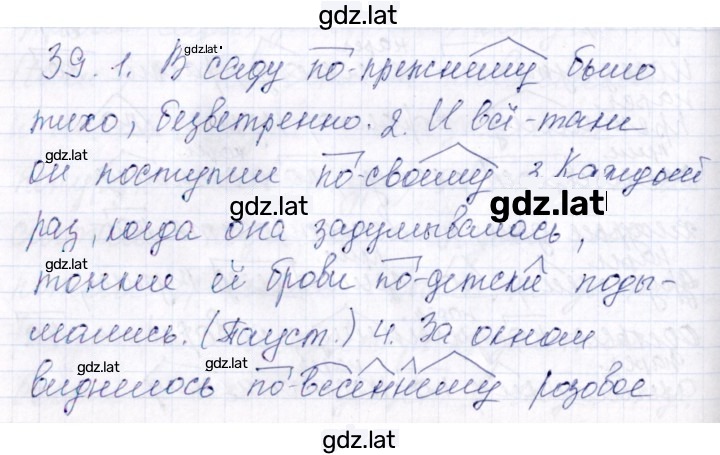 gdz.lat
39. 1. В саду по-прежнему было
gdz.lat
тихо, безветренно. 2. И всё-таки
gdz.lat
он поступил по-своему 2 Каждый
gdz.lat gdz.lat
раз, когда она задумывалась,
gdz.lat
тонкие её брови по-детски поды-
мались. (Пауст.) 4. За окном
gdz.lat gdz.lat
виднелось по-весеннему розовое
gdz.lat
gdz.lat